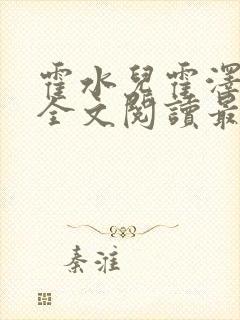 霍水兒霍澤
全文閱讀最
秦淮